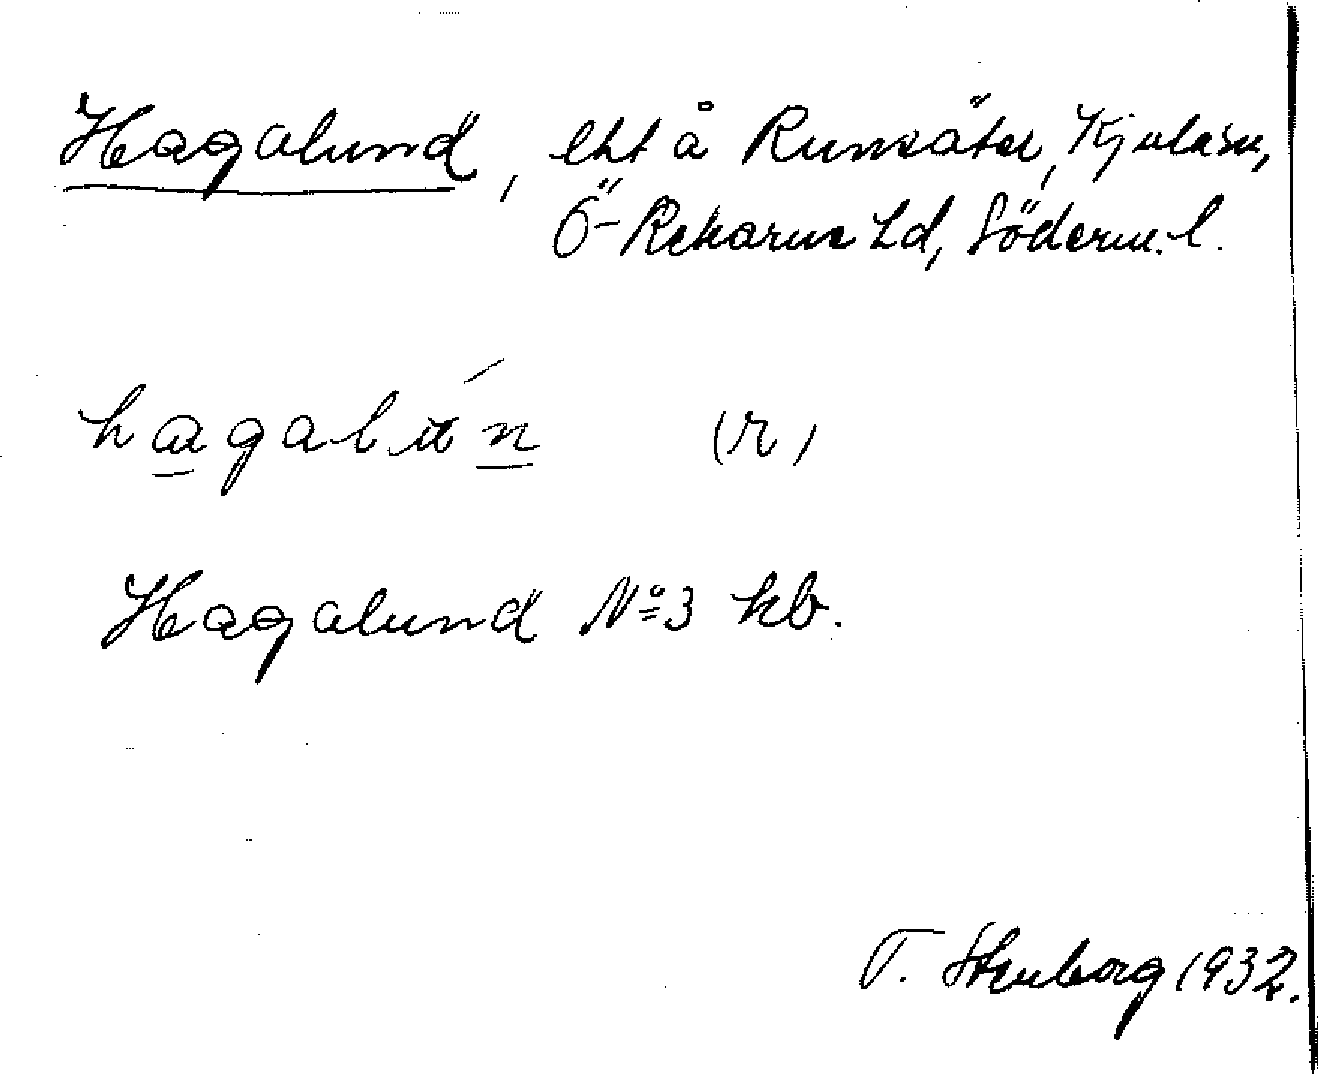 Hagalund, lht å Runsäter, Kjula sn,
Ö-Rekarne hd, Söderm. l.
hagalún (r)
Hagalund No 3 kb.
T. Stenborg 1932.